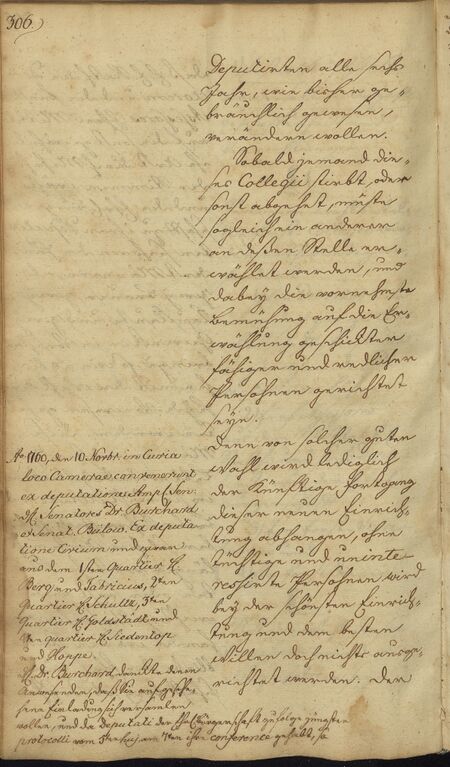 306.)
Deputirten alle sechs
Jahr, wie bisher ge-
bräuchlich gewesen,
verändern wollen.
Sobald jemand die-
ses Collegii stirbt, oder
sonst abgehet, müste
sogleich ein anderer
an deßen Stelle er-
wählet werden, und
dabey die vornehmste
Bemühung auf die Er-
wählung geschickter
fähiger und redlicher
Persohnen gerichtet
seyn.
Denn von solcher guten
Wahl wird lediglich
der künftige Fortgang
dieser neuen Einrich-
tung abhangen, ohne
tüchtige und uninte-
ressirte Persohnen wird
bey der schönsten Einrich-
tung und dem besten
Willen doch nichts ausge-
richtet werden. Der
Ao 1760, den 10 Novbr. in Curia
loco Camerae convenerunt
ex deputatione Ampl. Sen.
H. Senatores Dr. Burchard
et Senat. Bülow. Ex deputa-
tione Civium und zwar
aus dem 1sten Quartier H.
Berg und Fabricius, 2ten
Quartier H. Schultz, 3ten
Quartier H. Goldstädt und
4ten Quartier H. Siedentop
und Hoppe.
H. Dr. Burchard danckte denen
Anwesenden, daß Sie auf gesche-
hene Einladung sich versamlen
wollen, und da Deputati der Bürgerschaft zufolge jüngsten
protocolli vom 3ten huj. am 7ten ihre conference gehabt, so